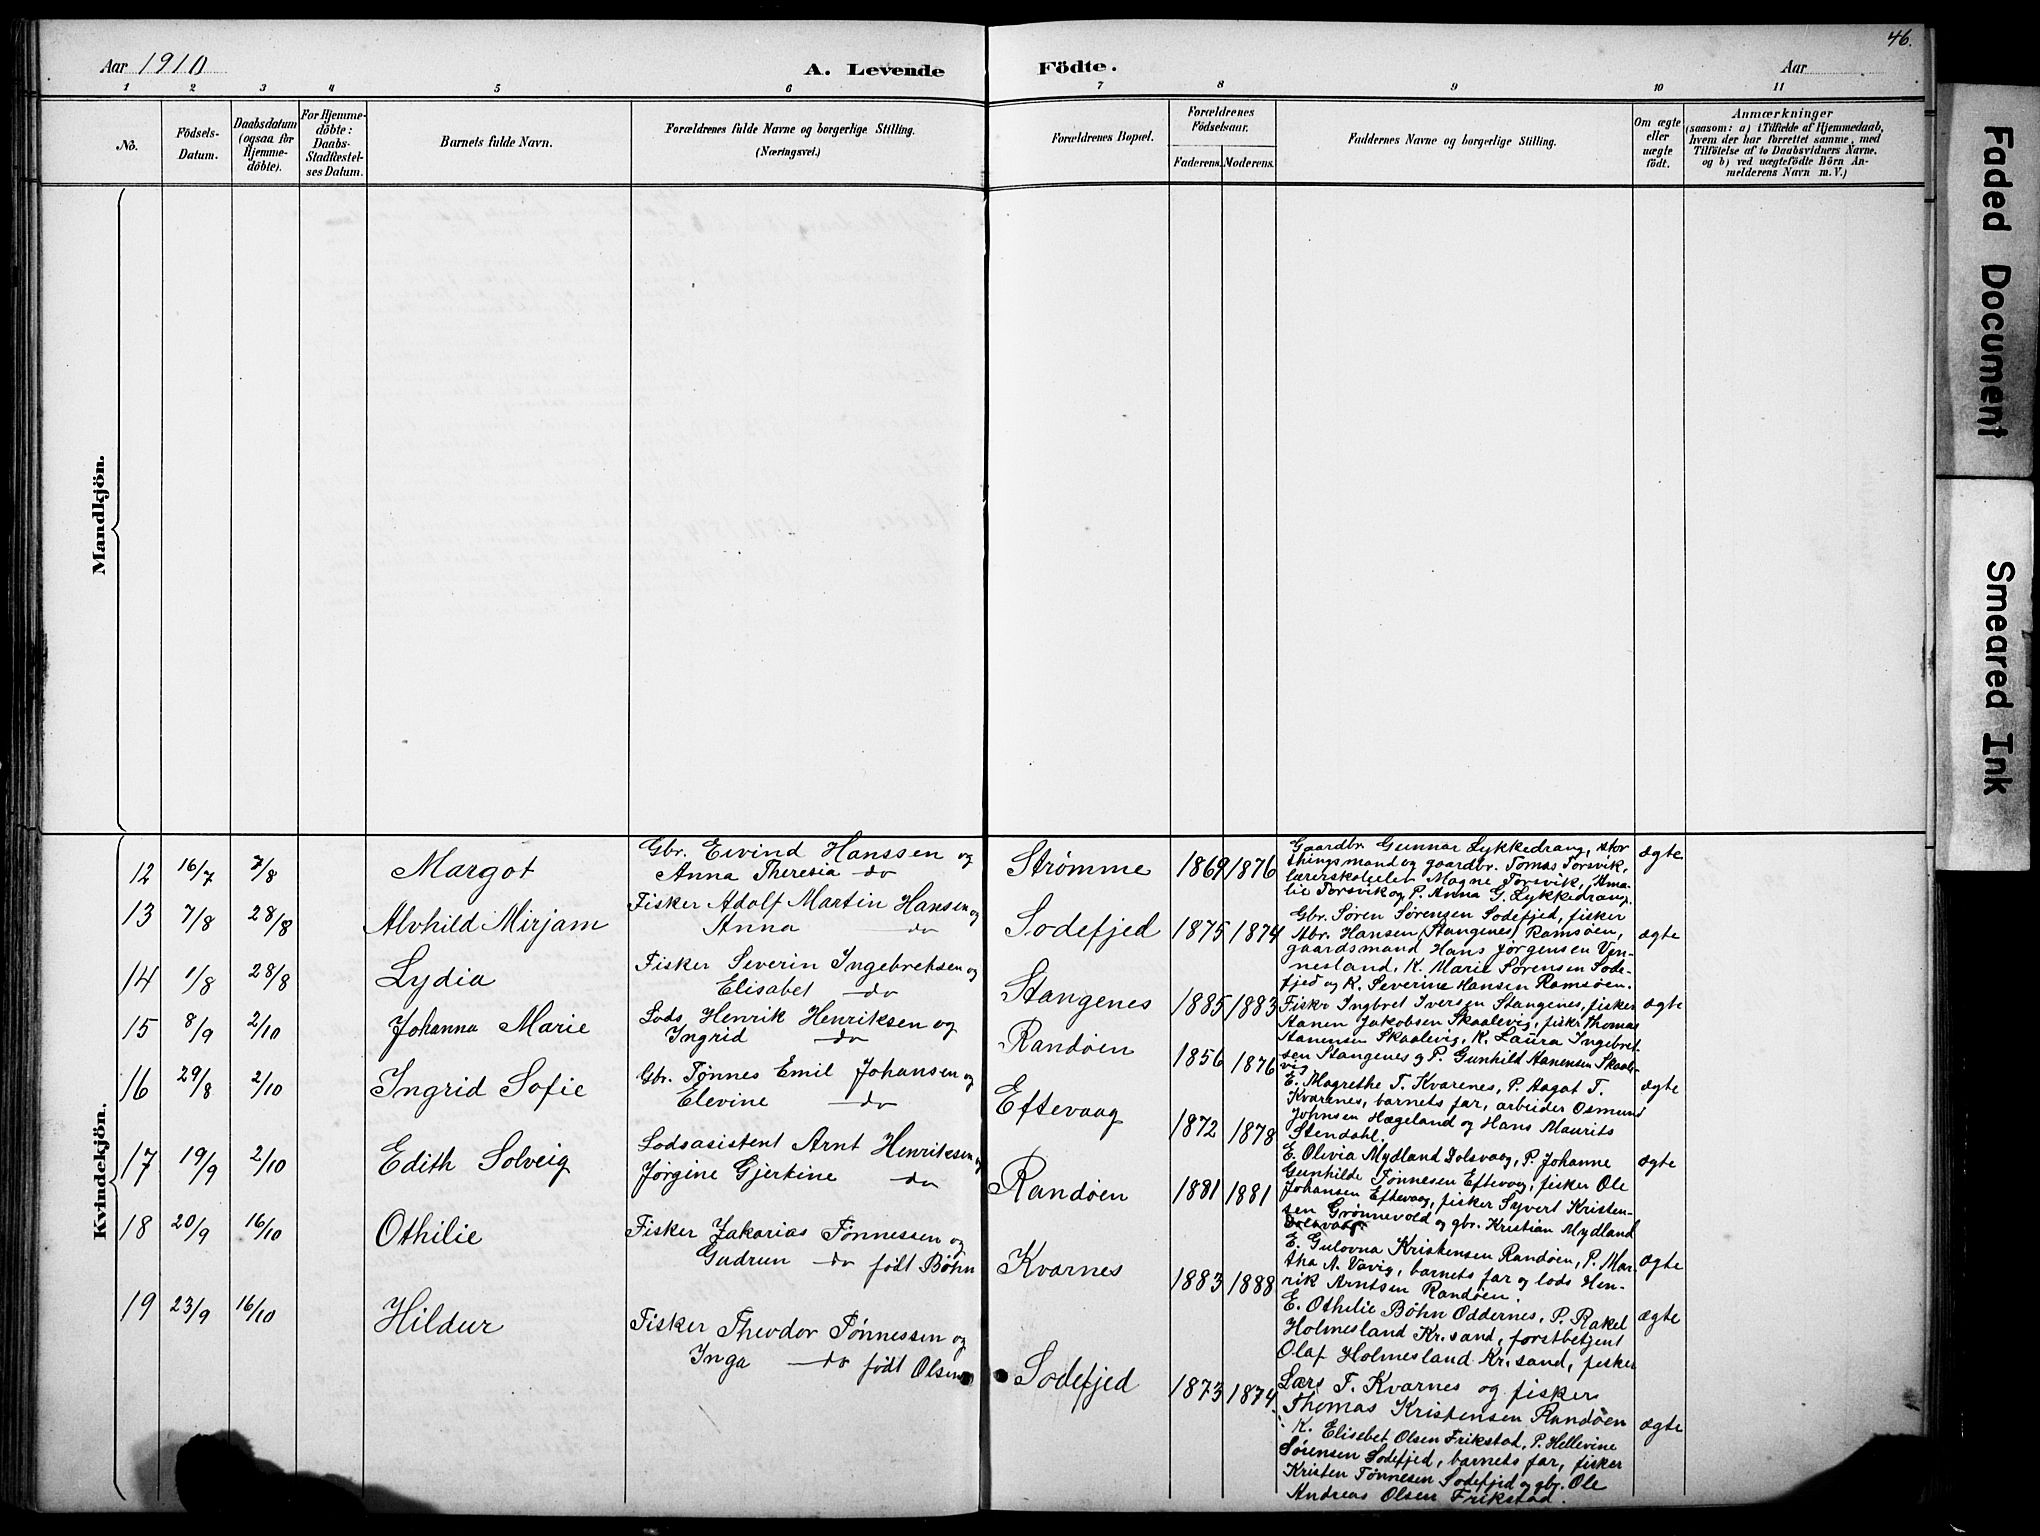 46.
Aar 1910
A. Levende Födte.
Aar
1 2 3 4 5 6 7 8 9 10 11
No.
Födsels-Datum.
Daabsdatum (ogsaa for Hjemme-döbte).
For Hjemme-döbte: Daabs-Stadfæstel-ses Datum.
Barnets fulde Navn.
Forældrenes fulde Navne og borgerlige Stilling.
(Næringsvei.)
Forældrenes Bopæl.
Forældrenes Födselsaar.
Faderens. Moderens.
Faddernes Navne og borgerlige Stilling.
Om ægte eller uægte födt.
Anmærkninger
(saasom: a) i Tilfælde af Hjemmedaab,
hvem der har forrettet samme, med
Tilföielse af to Daabsvidners Navne,
og b) ved uægtefödte Börn An-
melderens Navn m. V.)
Mandkjön.
Kvindekjön.
12 16/7 7/8 Margot
Gbr. Eivind Hanssen og
Anna Theresia do
Strømme 1869 1876
Gaardbr. Gunnar Lykkedrang, stor
thingsmand og gaardbr. Tomas Torsvik,
lærerskoleelev Magne Torsvik, Ama-
lie Torsvik og P. Anna G. Lykkedrang.
ægte
13 7/8 28/8 Alvhild Mirjam
Fisker Adolf Martin Hansen og
Anna do
Sodefjed 1875 1874
Gbr. Søren Sørensen Sodefjed, fisker
Abr. Hansen (Stangenes) Ramsøen,
gaardsmand Hans Jørgensen Ven-
nesland, K. Marie Sørensen Sode-
fjed og K. Severine Hansen Ramsøen.
ægte
14 1/8 28/8 Lydia
Fisker Severin Ingebretsen og
Elisabet do
Stangenes 1885 1883
Fiskr Ingbret Iversen Stangenes, fisker
Aanen Jakobsen Skaalevig, fiskr Thomas
Aanensen Skaalevig, K. Laura Ingebret-
sen Stangenes og P. Gunhild Aanensen Skaale-
vig
ægte
15 8/9 2/10 Johanna Marie
Lods Henrik Henriksen og
Ingrid do
Randøen 1856 1876
E. Magrethe T. Kvarenes, P. Aagot T.
Kvarenes, barnets far, arbeider Osmund
Johnsen Hægeland og Hans Maurits
Stendahl.
ægte
16 29/8 2/10 Ingrid Sofie
Gbr. Tønnes Emil Johansen og
Elevine do
Eftevaag 1872 1878
E. Olivia Mydland Dolsvaag, P. Johanne
Gunhilde Tønnesen Eftevaag, fisker Ole
Johansen Eftevaag, fisker Syvert Kristen-
sen Grønnevold og gbr. Kristian Mydland
Dolsvaag.
ægte
17 19/9 2/10 Edith Solveig
Lodsasistent Arnt Henriksen og
Jørgine Gjertine do
Randøen 1881 1881
E. Gulovna Kristensen Randøen, P. Mar-
tha A. Vavig, barnets far og lods Hen-
rik Arntsen Randøen.
ægte
18 20/9 16/10 Othilie
Fisker Zakarias Tønnessen og
Gudrun do født Bøhn
Kvarnes 1883 1888
E. Othilie Bøhn Oddernes, P. Rakel
Holmesland Kr.sand, forstbetjent
Olaf Holmesland Kr.sand, fisker
Lars T. Kvarnes og fisker
Thomas Kristensen Randøen
ægte
19 23/9 16/10 Hildur
Fisker Theodor Tønnessen og
Inga do født Olsen
Sodefjed 1873 1874
K. Elisebet Olsen Frikstad, P. Hellevine
Sørensen Sodefjed, barnets far, fisker
Kristen Tønnesen Sodefjed og gbr. Ole
Andreas Olsen Frikstad.
ægte
Faded Document
Smeared Ink